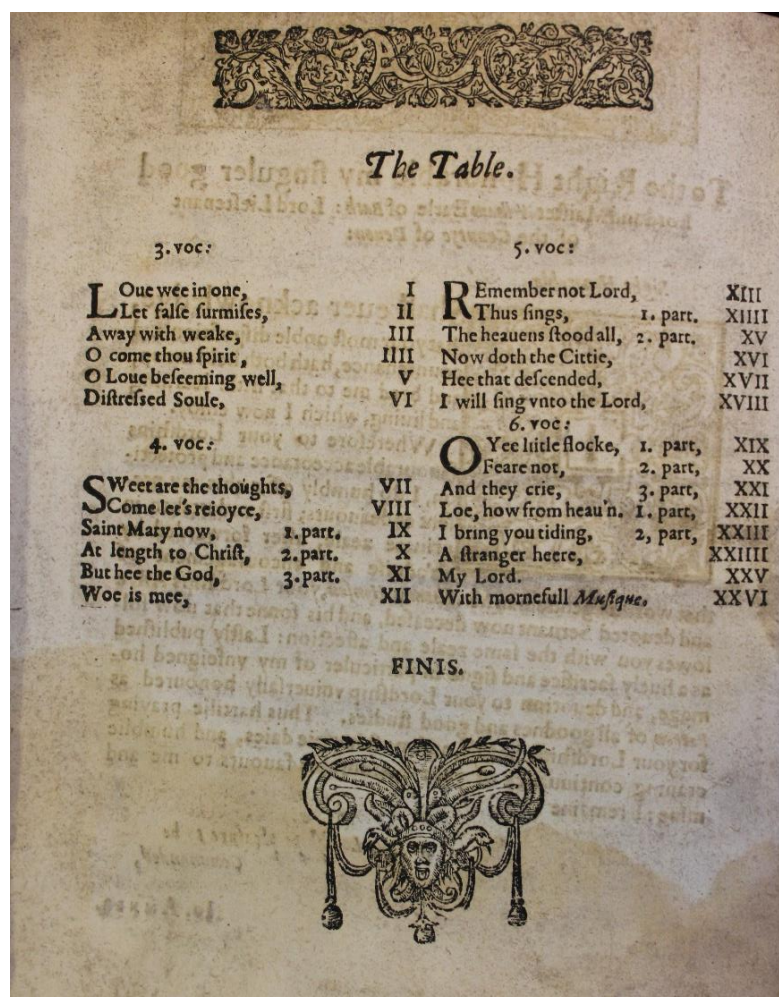 The Table.
3. voc:
LOue wee in one, I
Let falſe ſurmiſes, II
Away with weake, III
O come thou ſpirit, IIII
O Loue beſeeming well, V
Diſtreſſed Soule, VI
4. voc:
SWeet are the thoughts, VII
Come let's reioyce, VIII
Saint Mary now, 1. part. IX
At length to Chriſt, 2. part. X
But hee the God, 3. part. XI
Woe is mee, XII
5. voc:
REmember not Lord, XIII
Thus ſings, 1. part. XIIII
The heauens ſtood all, 2. part. XV
Now doth the Cittie, XVI
Hee that deſcended, XVII
I will ſing vnto the Lord, XVIII
6. voc:
O Yee little flocke, 1. part, XIX
Feare not, 2. part, XX
And they crie, 3. part, XXI
Loe, how from heau'n. 1. part, XXII
I bring you tiding, 2, part, XXIII
A ſtranger heere, XXIIII
My Lord. XXV
With mornefull Muſique. XXVI
FINIS.